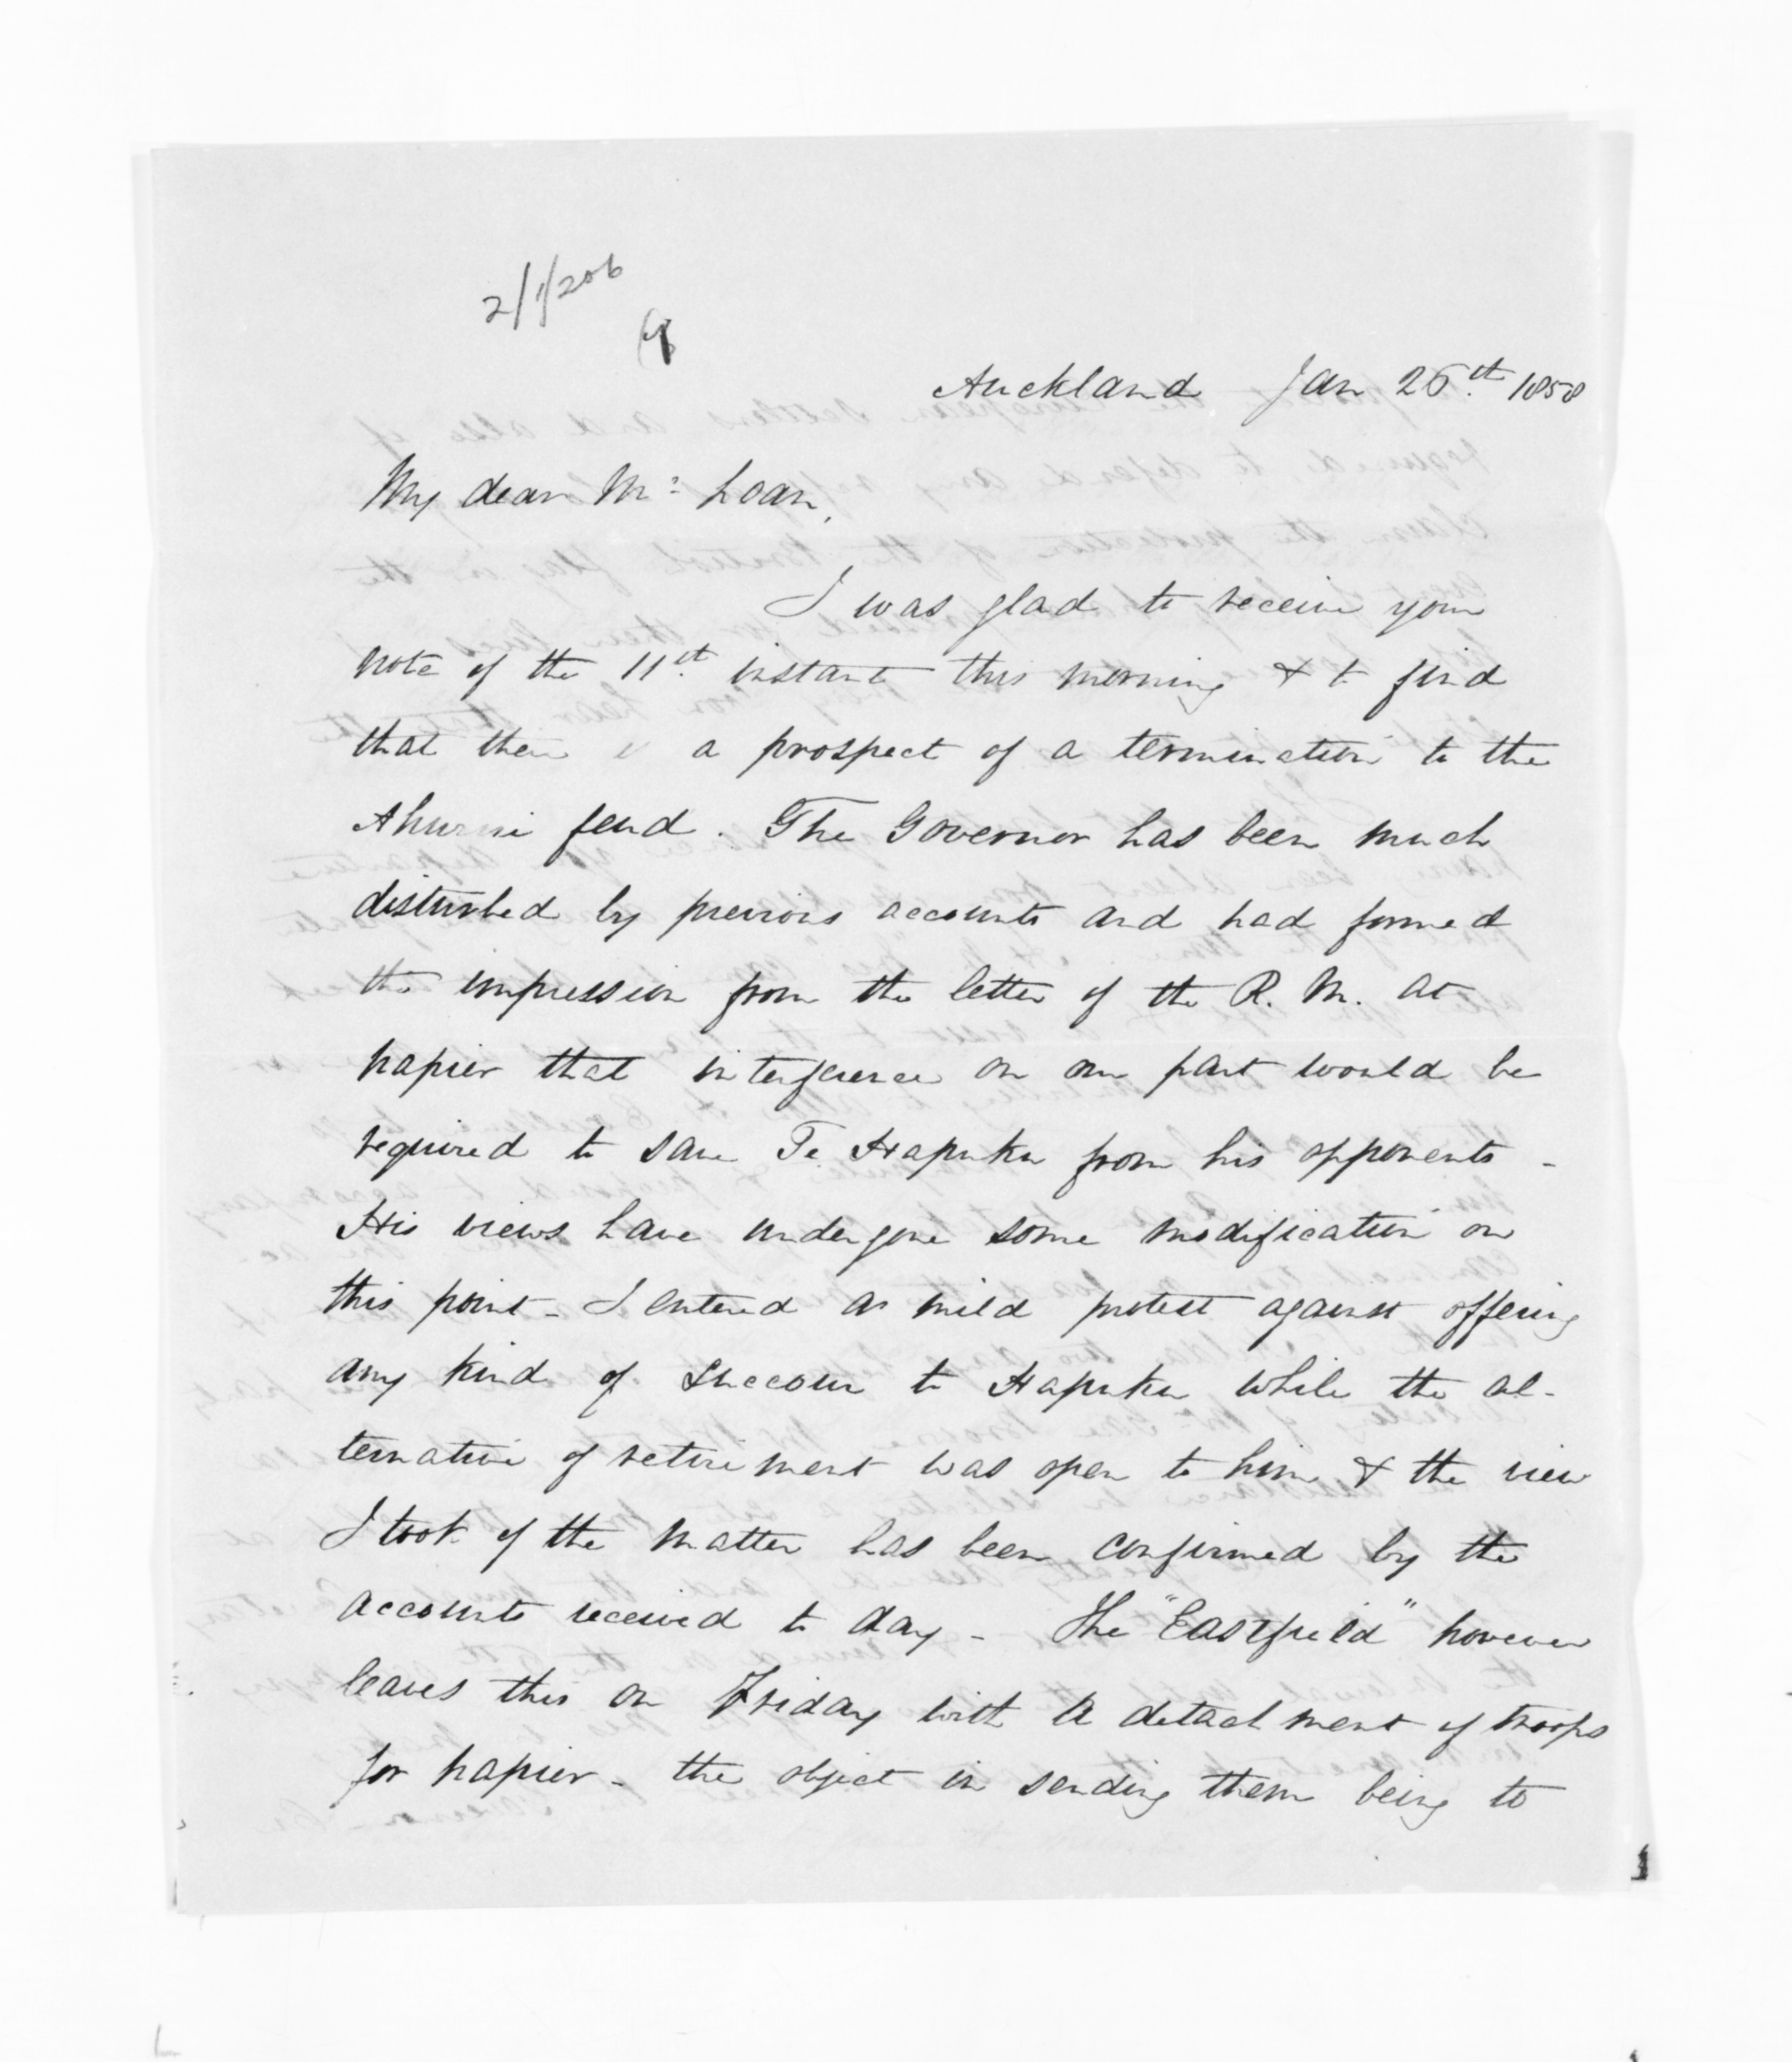 2/1/206
Auckland Jan 26th 1858
My dear Mr. Loan,
I was glad to receive your
note of the 11th instant this morning & to find
that there is a prospect of a termination to the
Ahuriri feud. The Governor has been much
disturbed by previous accounts and had formed
the impression from the letter of the R. M. at
Napier that interference on our part would be
required to save Te Hapuku from his opponents -
His views have undergone some modification on
this point - I entered a mild protest against offering
any kind of succour to Hapuku while the al-
ternative of retirement was open to him & the view
I took of the matter has been confirmed by the
accounts received to day - The "Eastfield" however
leaves this on Friday with a detachment of troops
for Napier - the object in sending them being to